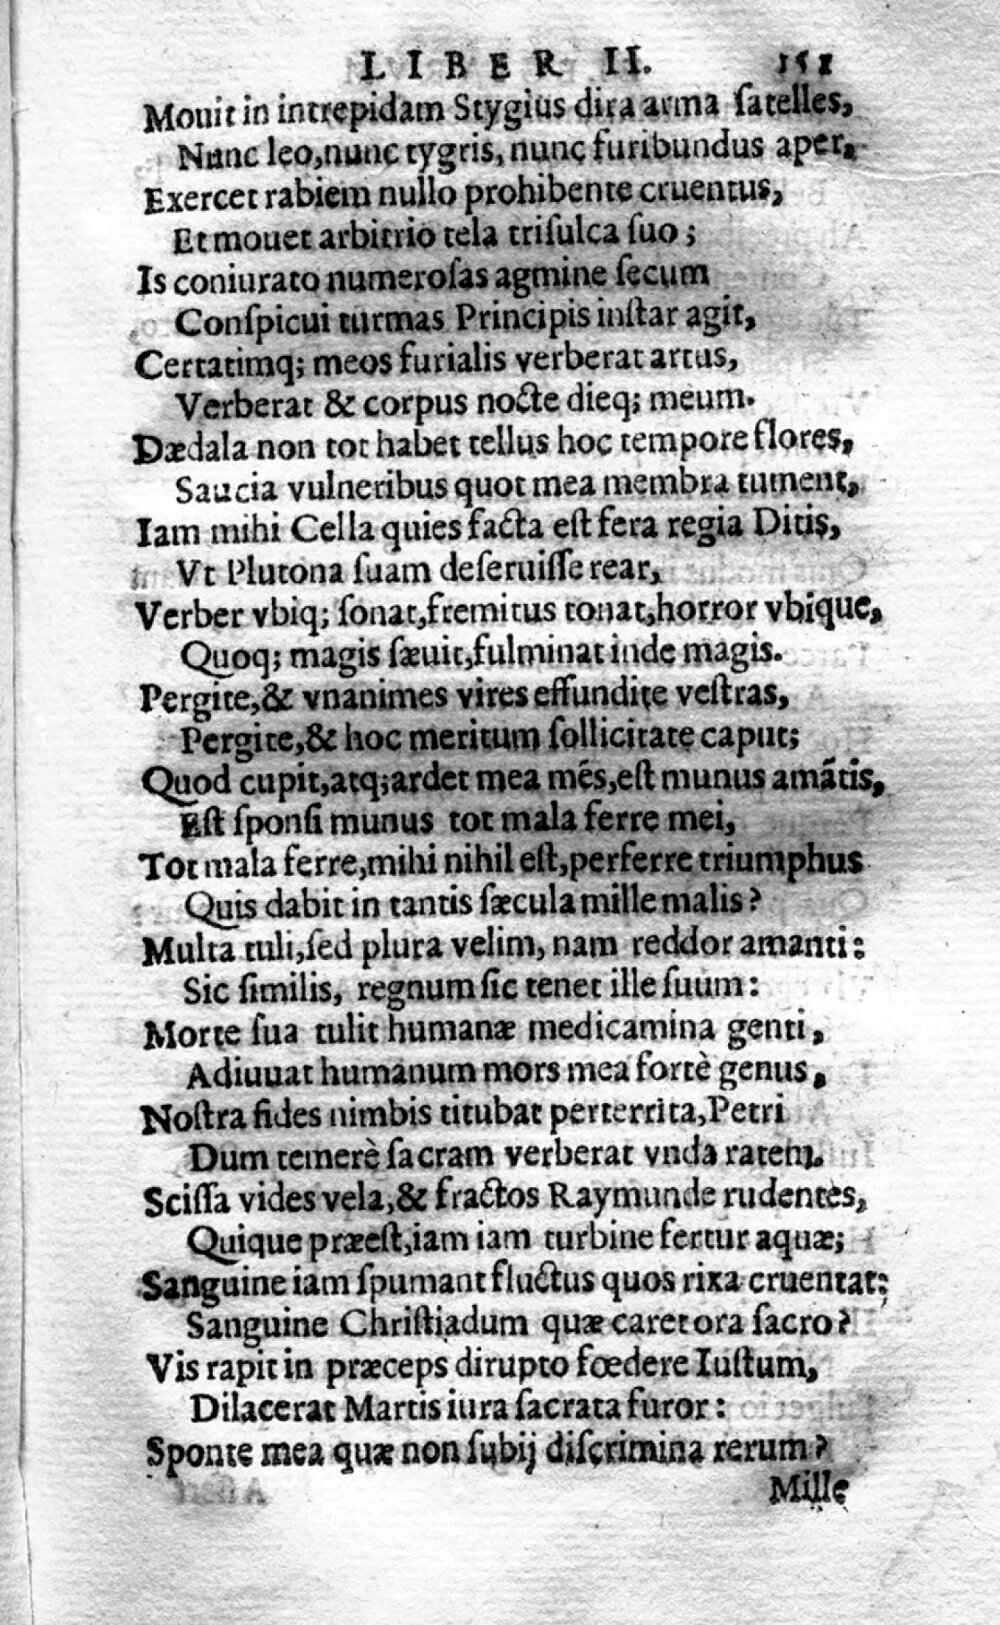 LIBER II. 151
Mouit in intrepidam Stygius dira arma ſatelles,
Nunc leo, nunc tygris, nunc furibundus aper,
Exercet rabiem nullo prohibente cruentus,
Et mouet arbitrio tela triſulca ſuo;
Is coniurato numeroſas agmine ſecum
Conſpicui turmas Principis inſtar agit,
Certatimq; meos furialis verberat artus,
Verberat & corpus nocte dieq; meum.
Dædala non tot habet tellus hoc tempore flores,
Saucia vulneribus quot mea membra tument,
Iam mihi Cella quies facta eſt fera regia Ditis,
Vt Plutona ſuam deſeruiſſe rear,
Verber vbiq; ſonat, fremitus tonat, horror vbique,
Quoq; magis ſæuit, fulminat inde magis.
Pergite, & vnanimes vires effundite veſtras,
Pergite, & hoc meritum ſollicitate caput;
Quod cupit, atq; ardet mea mẽs, eſt munus amãtis,
Eſt ſponſi munus tot mala ferre mei,
Tot mala ferre, mihi nihil eſt, perferre triumphus
Quis dabit in tantis ſæcula mille malis?
Multa tuli, ſed plura velim, nam reddor amanti:
Sic ſimilis, regnum ſic tenet ille ſuum:
Morte ſua tulit humanæ medicamina genti,
Adiuuat humanum mors mea fortè genus,
Noſtra fides nimbis titubat perterrita, Petri
Dum temerè ſacram verberat vnda ratem.
Sciſſa vides vela, & fractos Raymunde rudentes,
Quique præeſt, iam iam turbine fertur aquæ;
Sanguine iam ſpumant fluctus quos rixa cruentat;
Sanguine Chriſtiadum quæ caret ora ſacro?
Vis rapit in præceps dirupto fœdere Iuſtum,
Dilacerat Martis iura ſacrata furor:
Sponte mea quæ non ſubij diſcrimina rerum?
Mille